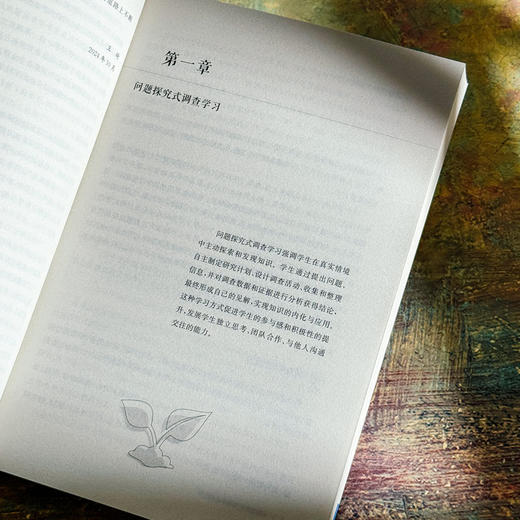 道路上不断
第一章
问题探究式调查学习
问题探究式调查学习强调学生在真实情境
中主动探索和发现知识。学生通过提出问题、
自主制定研究计划、设计调查活动、收集和整理
信息,并对调查数据和证据进行分析获得结论,
最终形成自己的见解,实现知识的内化与应用。
这种学习方式促进学生的参与感和积极性的提
升,发展学生独立思考、团队合作、与他人沟通
交往的能力。